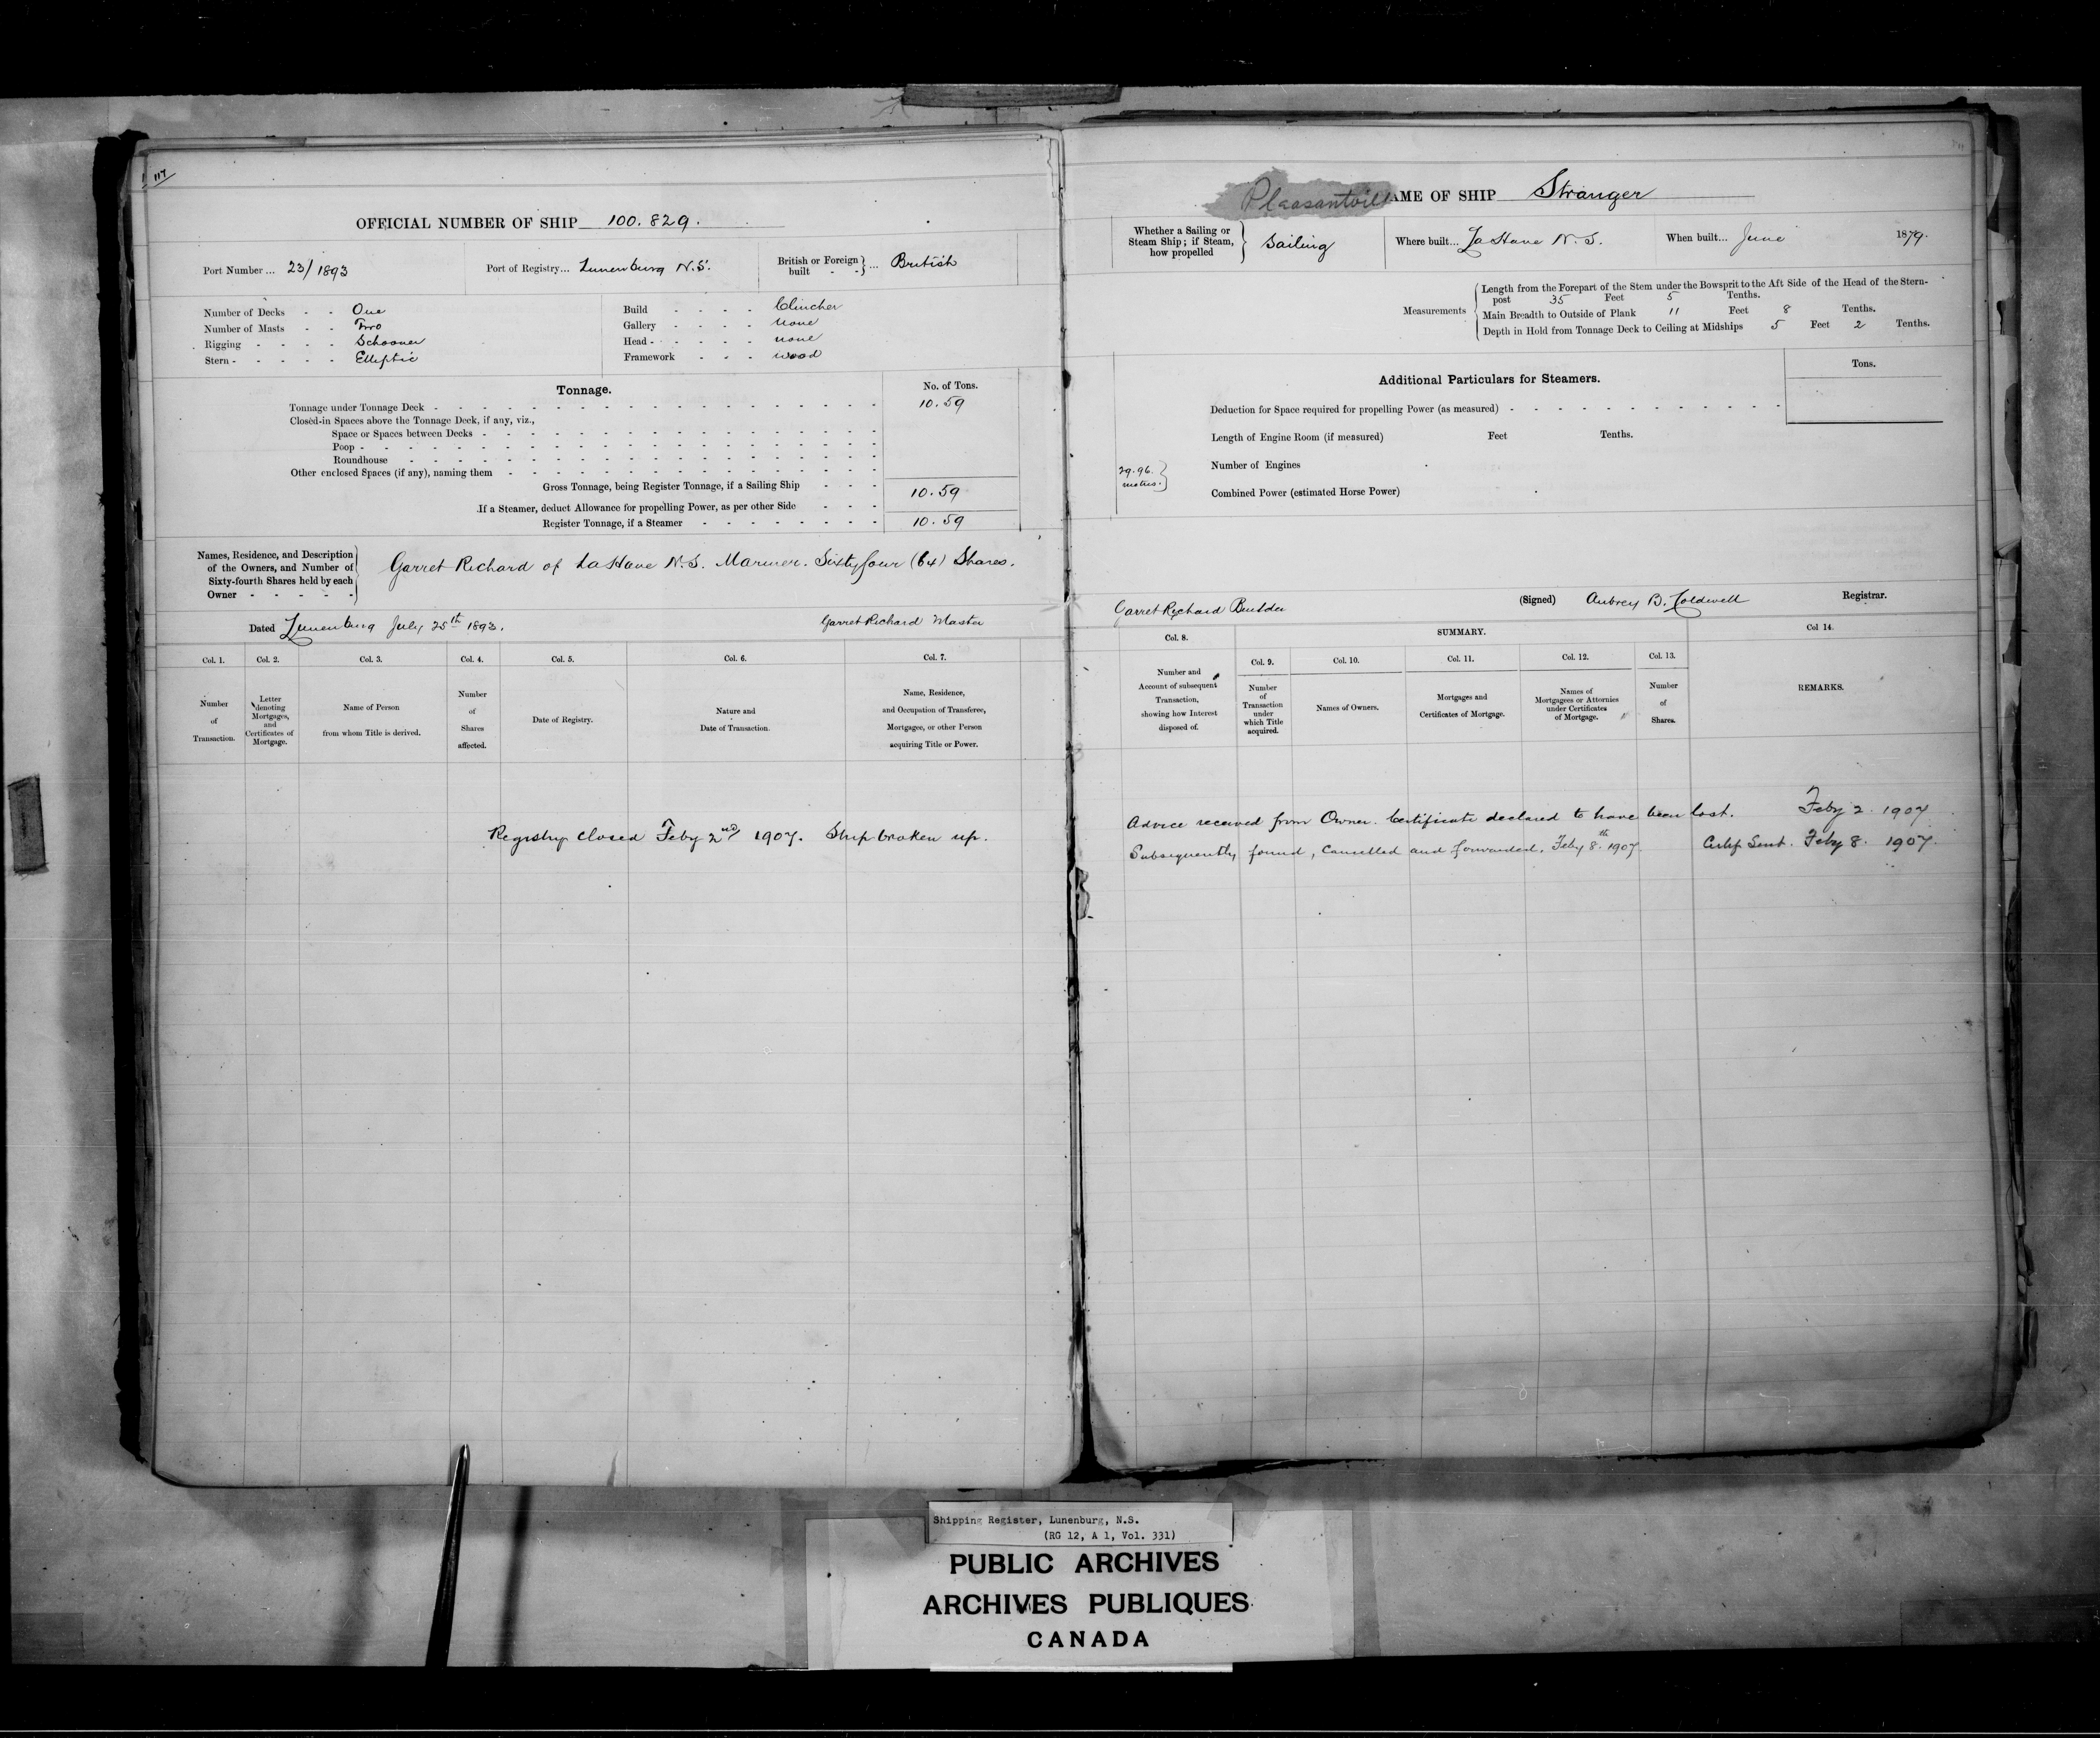 117
OFFICIAL NUMBER OF SHIP 100.829.
Port Number ... 23/1893
Port of Registry... Lunenburg N.S.
British or Foreign built - - } ... British
Number of Decks - - One
Number of Masts - - Two
Rigging - - - - Schooner
Stern - - - - - Elliptic
Build - - - - Clincher
Gallery - - - - none
Head - - - - - none
Framework - - - wood
Tonnage.
No. of Tons.
Tonnage under Tonnage Deck - 10.59
Closed-in Spaces above the Tonnage Deck, if any, viz.,
Space or Spaces between Decks -
Poop -
Roundhouse -
Other enclosed Spaces (if any), naming them -
Gross Tonnage, being Register Tonnage, if a Sailing Ship - - - 10.59
If a Steamer, deduct Allowance for propelling Power, as per other Side - - -
Register Tonnage, if a Steamer - 10.59
Names, Residence, and Description
of the Owners, and Number of
Sixty-fourth Shares held by each
Owner - - - - -
Garret Richard of LaHave N.S. Mariner. Sixty four (64) Shares.
Dated Lunenburg July 25th 1893.
Garret Richard Master
Col. 1. Col. 2. Col. 3. Col. 4. Col. 5. Col. 6. Col. 7.
Number of Transaction.
Letter denoting Mortgages, and Certificates of Mortgage.
Name of Person from whom Title is derived.
Number of Shares affected.
Date of Registry.
Nature and Date of Transaction.
Name, Residence, and Occupation of Transferee, Mortgagee, or other Person acquiring Title or Power.
Registry closed Feby 2nd 1907. Ship broken up.
Pleasantvill AME OF SHIP Stranger
Whether a Sailing or Steam Ship; if Steam, how propelled } Sailing
Where built... LaHave N.S.
When built... June 1879.
Measurements
Length from the Forepart of the Stem under the Bowsprit to the Aft Side of the Head of the Stern-
post 35 Feet 5 Tenths.
Main Breadth to Outside of Plank 11 Feet 8 Tenths.
Depth in Hold from Tonnage Deck to Ceiling at Midships 5 Feet 2 Tenths.
Tons.
Additional Particulars for Steamers.
Deduction for Space required for propelling Power (as measured) -
Length of Engine Room (if measured) Feet Tenths.
Number of Engines
29.96.
metres.
Combined Power (estimated Horse Power)
Garret Richard Builder
(Signed) Aubrey B. Coldwell Registrar.
Col. 8. SUMMARY. Col 14.
Col. 9. Col. 10. Col. 11. Col. 12. Col. 13.
Number and Account of subsequent Transaction, showing how Interest disposed of.
Number of Transaction under which Title acquired.
Names of Owners.
Mortgages and Certificates of Mortgage.
Names of Mortgagees or Attornies under Certificates of Mortgage.
Number of Shares.
REMARKS.
Advice received from Owner. Certificate declared to have been lost. Feby 2. 1907
Subsequently found, Cancelled and forwarded. Feby 8th 1907. Certif Sent. Feby 8. 1907.
Shipping Register, Lunenburg, N.S.
(RG 12, A 1, Vol. 331)
PUBLIC ARCHIVES
ARCHIVES PUBLIQUES
CANADA